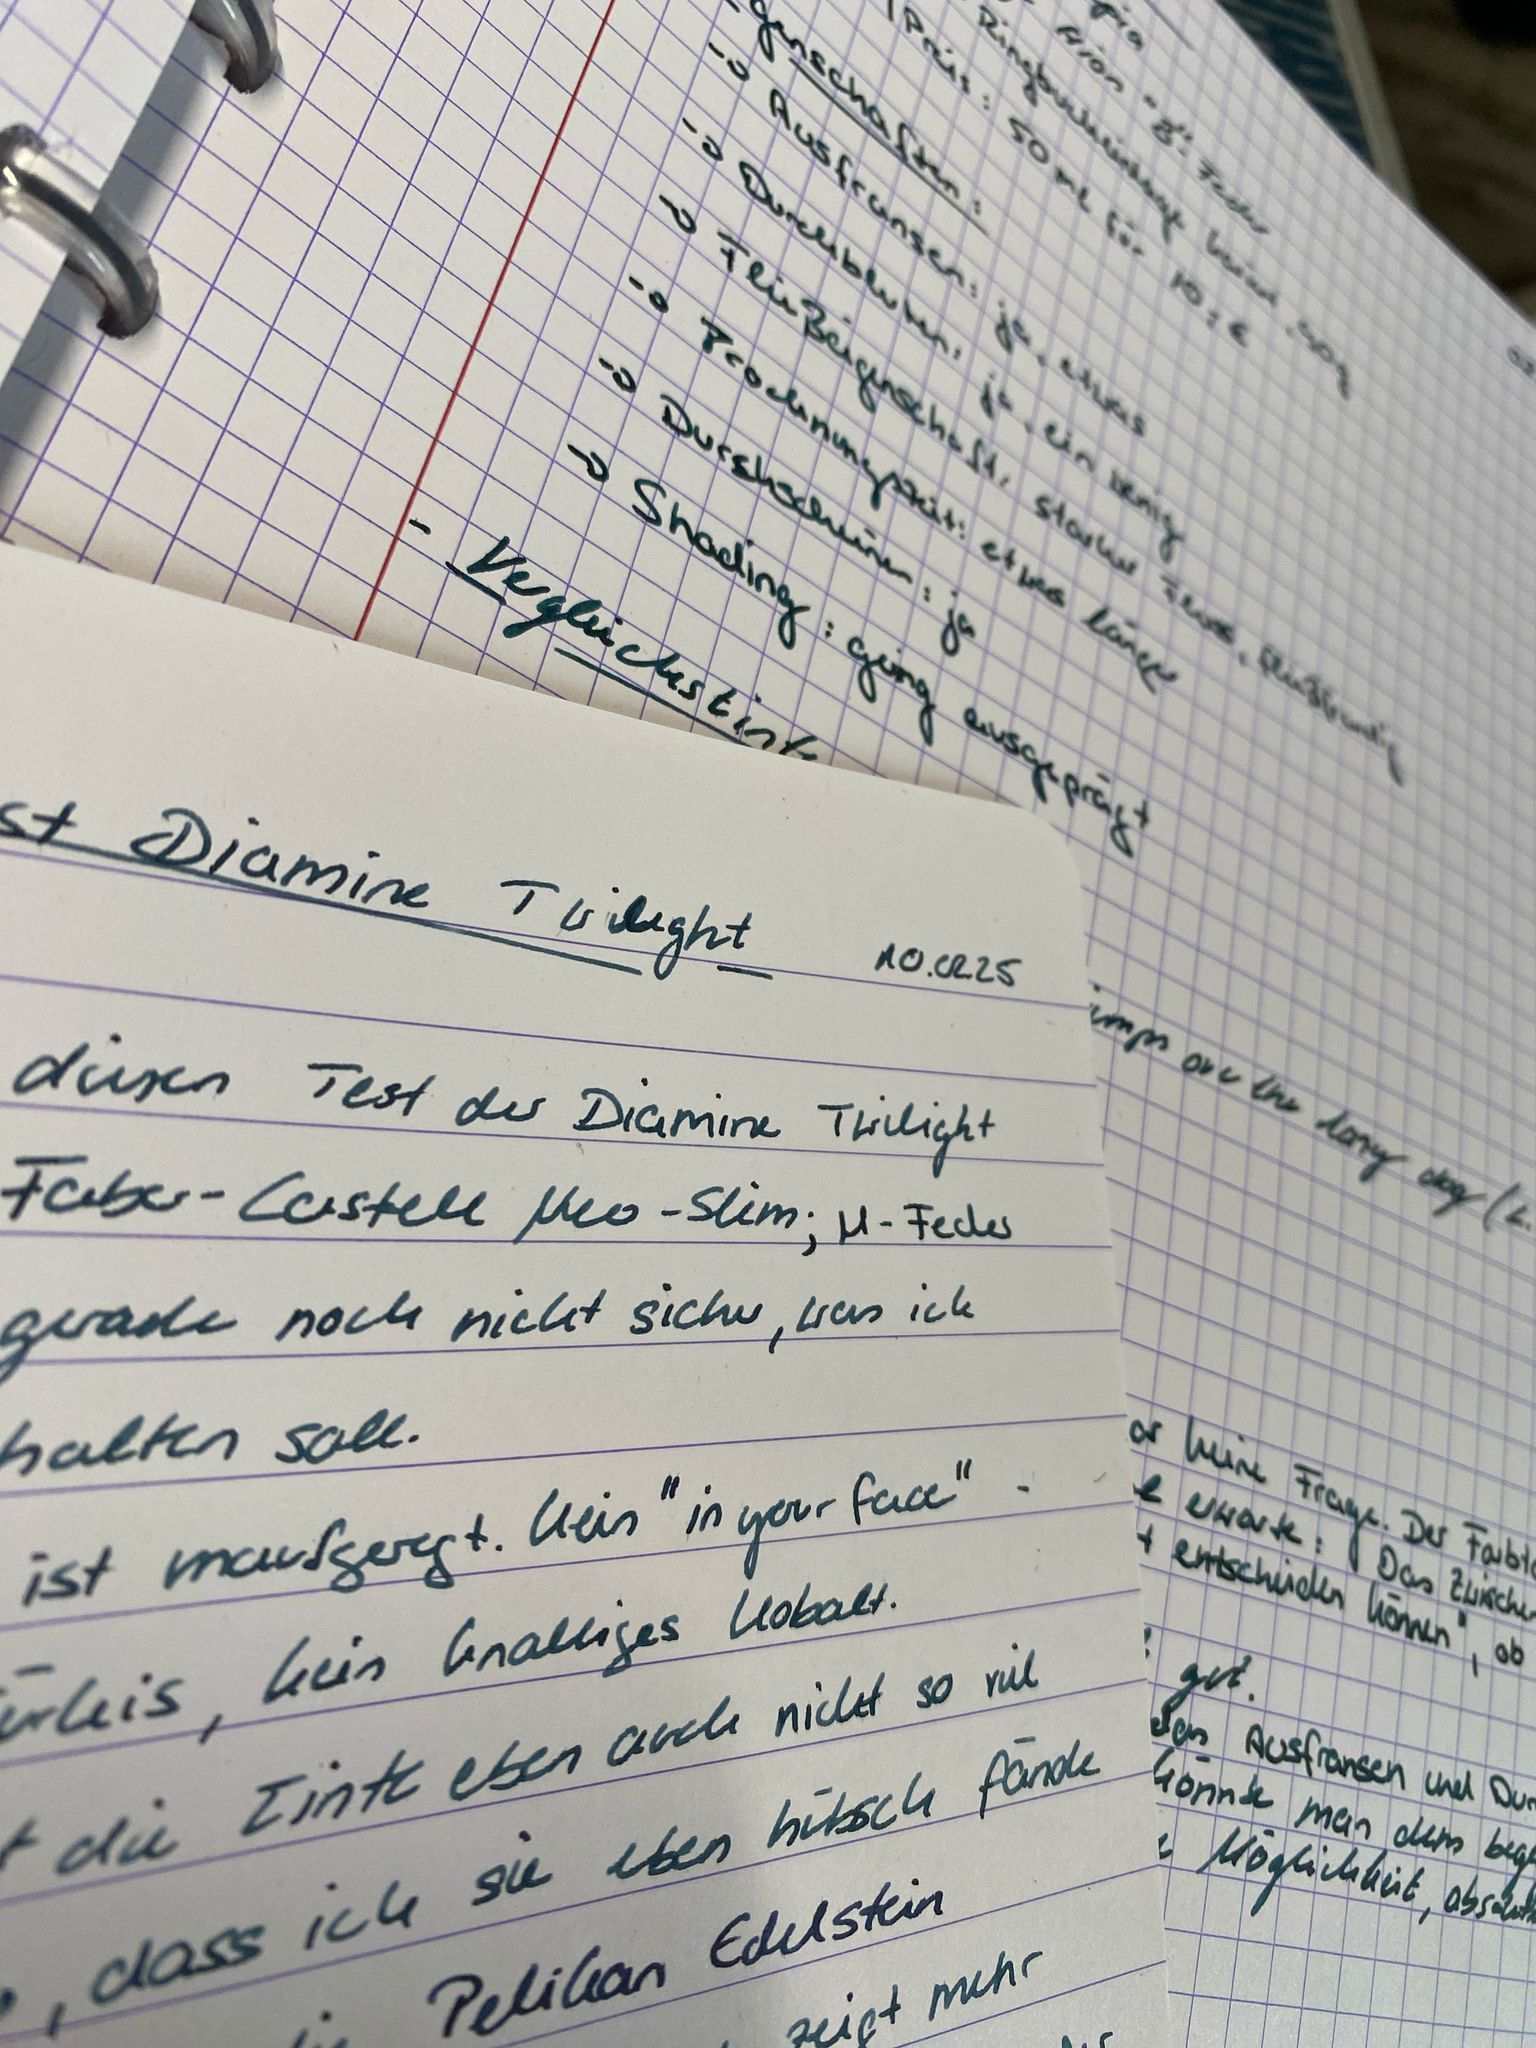 "B"-Feder
Preis: 50ml für 10,- €
genschaften:
-> Ausfransen: ja, etwas
-> Durchbluten: ja, ein wenig
-> Fließeigenschaft: starker Fluss,
-> Trocknungszeit: etwas länger
-> Durchscheinen: ja
-> Shading: gering ausgeprägt
- Vergleichstinte
st Diamine Twilight 10.02.25
diesen Test der Diamine Twilight
Faber-Castell Neo-Slim; M-Feder
gerade noch nicht sicher, was ich
halten soll.
ist unaufgeregt. Kein "in your face" -
ürkis, kein knalliges Kobalt.
t die Tinte eben auch nicht so viel
, dass ich sie eben hübsch fände
Pelikan Edelstein
zeigt mehr
umps over the lazy dog (
or keine Frage. Der Farbto
e erwarte: Das Zwischen
t entscheiden können", ob
gut.
das Ausfransen und Dur
könnte man dem bege
e Möglichkeit, absolut